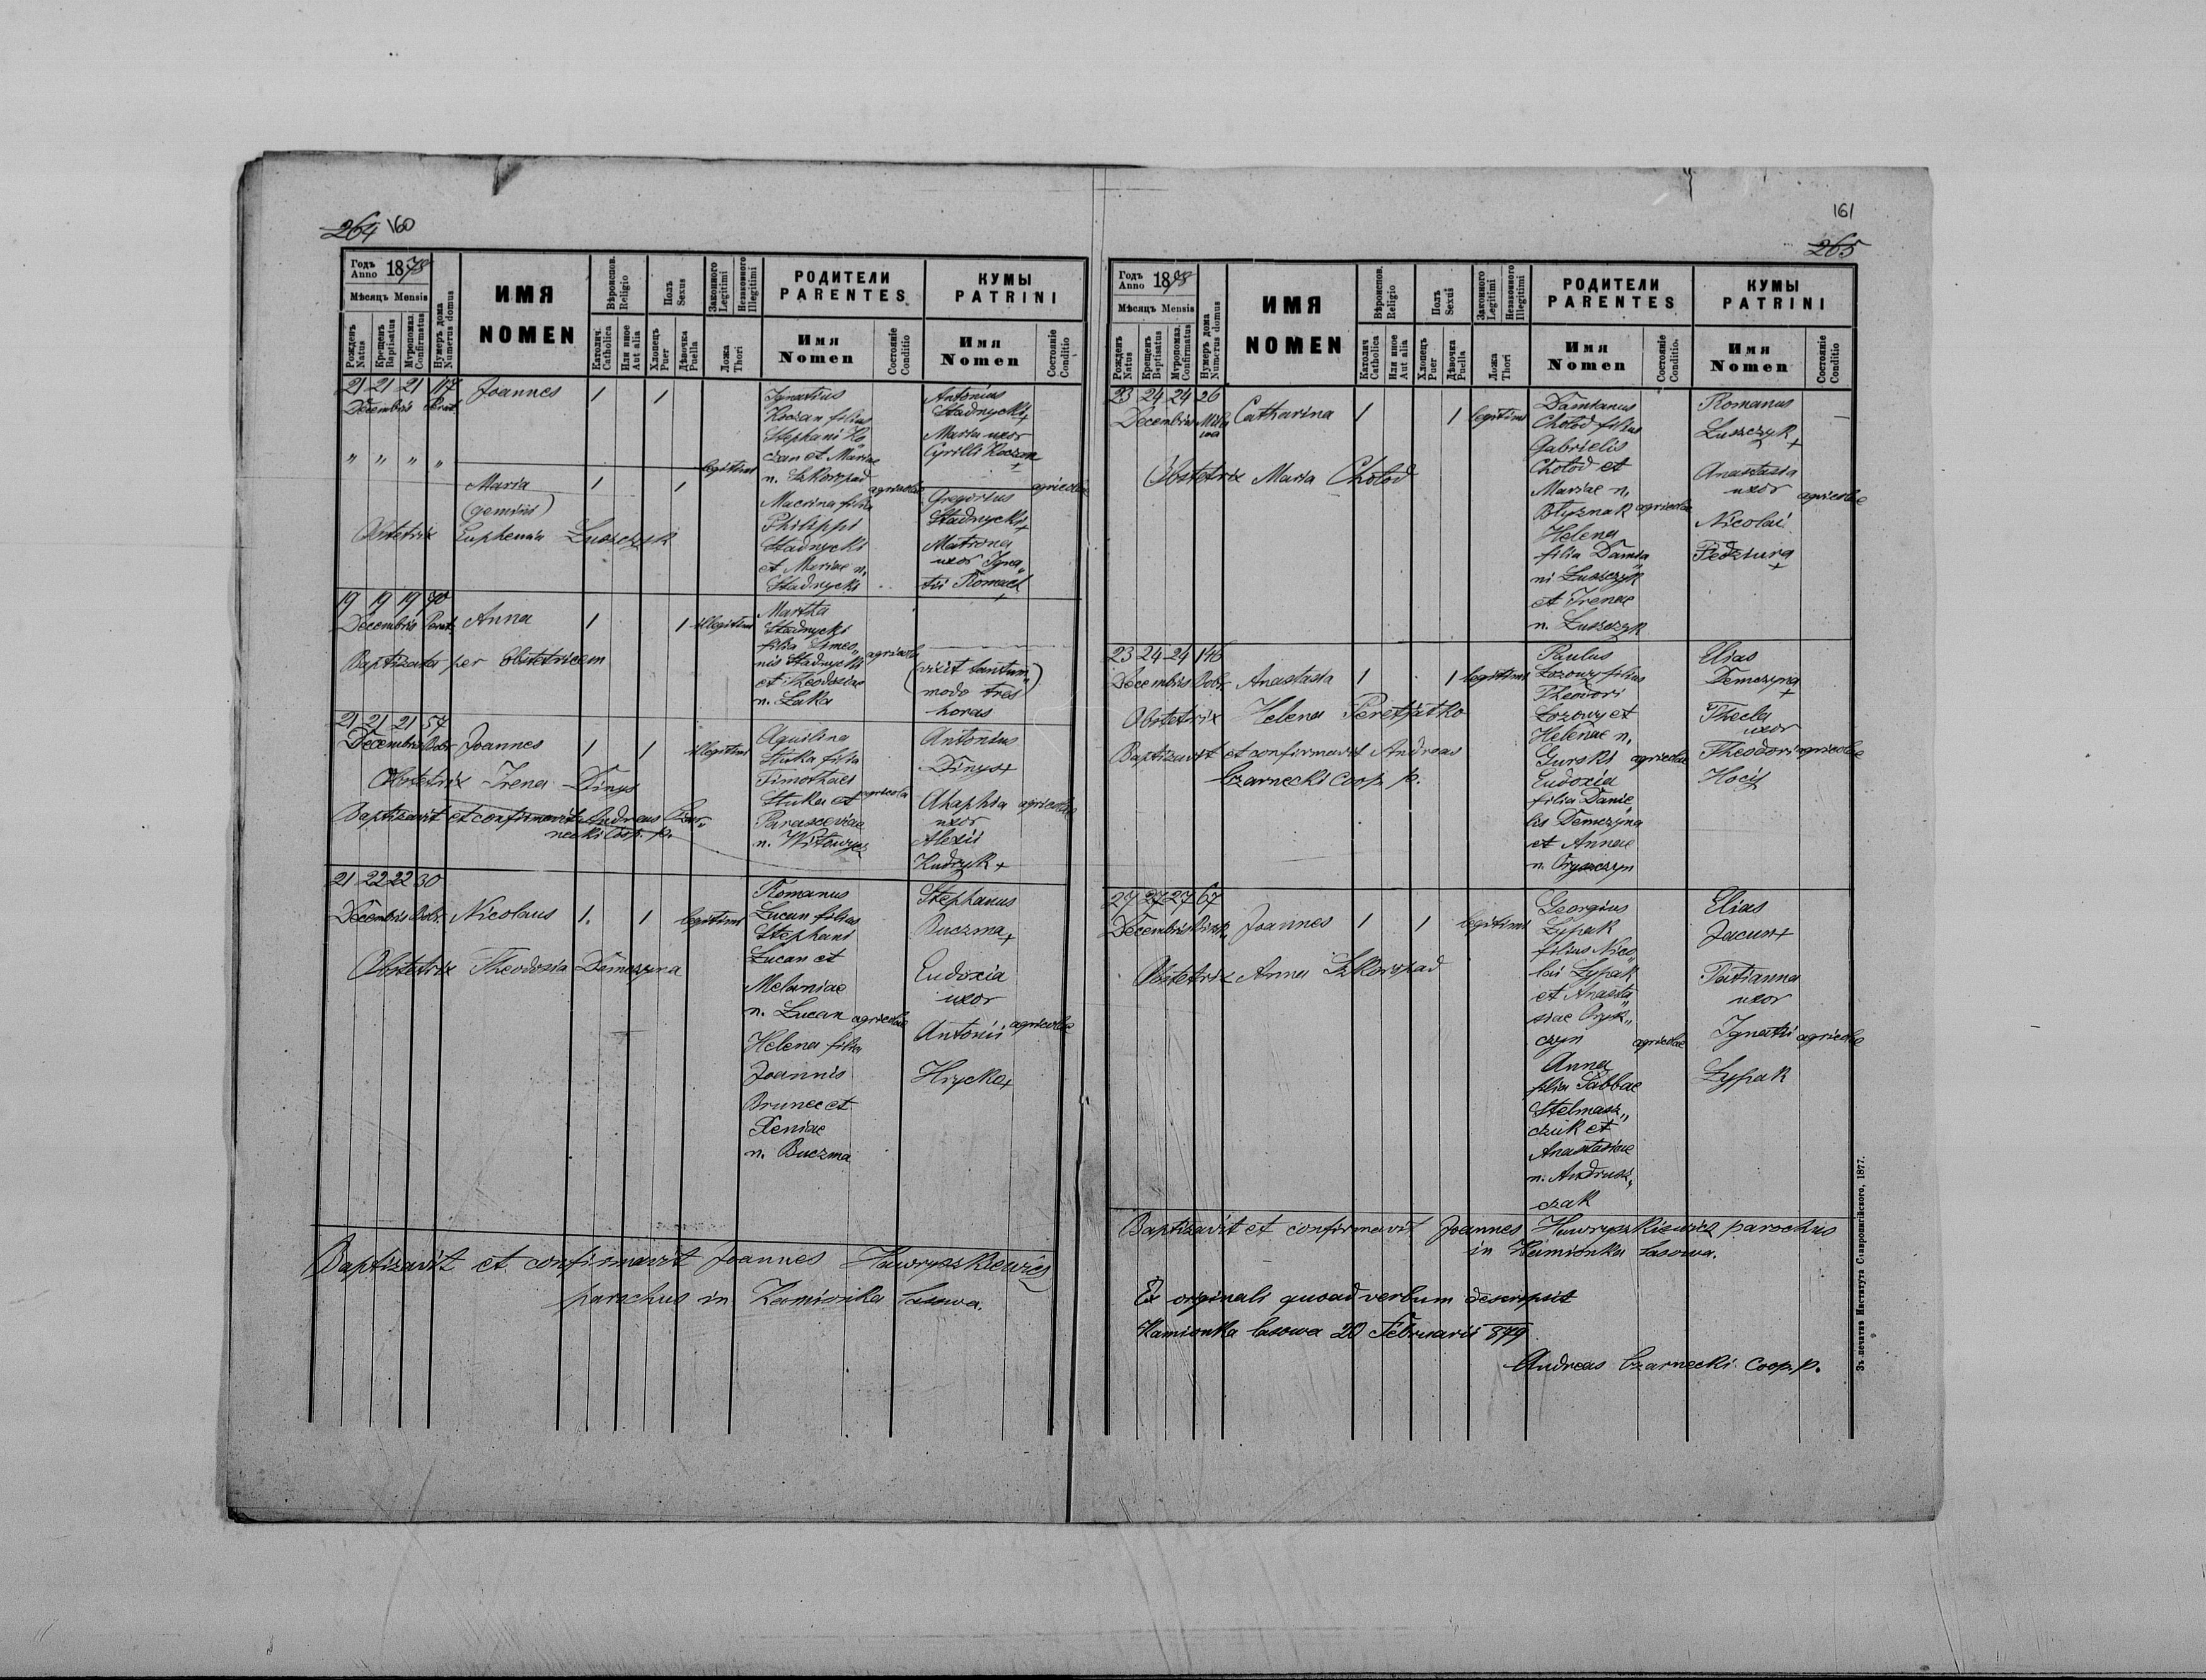 264 160
Годъ Anno 1878
Мѣсяцъ Mensis
Рожденъ Natus
Крещенъ Baptisatus
Мѵропомаз. Confirmatus
Нумеръ дома Numerus domus
ИМЯ
NOMEN
Вѣроиспов. Religio
Католич. Catholica
Или иное Aut alia
Полъ Sexus
Хлопецъ Puer
Дѣвочка Puella
Законного Legitimi
Незаконного Illegitimi
Ложа Thori
РОДИТЕЛИ
PARENTES
Имя
Nomen
Состояніе Conditio
КУМЫ
PATRINI
Имя
Nomen
Состояніе Conditio
21 21 21 117
Decembris
Joannes 1 1
Ignatius
Koczan filius
Stephani Ko„
czan et Mariae
n. Szkoropad
Macrina filia
Philippi
Stadnycki
et Mariae n.
Stadnycki
legitimi
agricolae
Antonius
Stadnycki +
Maria uxor
Cyrilli Koczan
+
Gregorius
Stadnycki +
Matrona
uxor Igna„
tii Romach
+
agricolae
„ „ „ „
Maria 1 1
(gemini)
Obstetrix Euphemia Luszczyk
19 19 19 90
Decembris
Anna 1 1 illegitimi
Martha
Stadnycki
filia Simeo„
nis Stadnycki
et Theodosiae
n. Laka
agricola
(vixit tantum„
modo tres)
horas
Baptizata per Obstetricem
21 21 21 57
Decembris Bobr.
Joannes 1 1 illegitimi
Aquilina
Stuka filia
Timothaei
Stuka et
Parasceviae
n. Witowycz
agricola
Antonius
Dinys +
Ahaphia
uxor
Alexii
Kudryk +
agricolae
Obstetrix Irena Dinys
Baptizavit et confirmavit Andreas Czar„
necki Coop. p.
21 22 22 30
Decembris Bobr.
Nicolaus 1. 1 legitimi
Romanus
Lucan filius
Stephani
Lucan et
Melaniae
n. Lucan agricolae
Helena filia
Joannis
Brunec et
Xeniae
n. Buczma
Stephanus
Buczma +
Eudoxia
uxor
Antonii agricolae
Hrycka +
Obstetrix Theodosia Demczyna
Baptizavit et confirmavit Joannes Hawryszkiewicz
parochus in Kamionka lasowa.
161
265
Годъ Anno 1878
Мѣсяцъ Mensis
Рожденъ Natus
Крещенъ Baptisatus
Мѵропомаз. Confirmatus
Нумеръ дома Numerus domus
ИМЯ
NOMEN
Вѣроиспов. Religio
Католич Catholica
Или иное Aut alia
Полъ Sexus
Хлопецъ Puer
Дѣвочка Puella
Законного Legitimi
Незаконного Illegitimi
Ложа Thori
РОДИТЕЛИ
PARENTES
Имя
Nomen
Состояніе Conditio.
КУМЫ
PATRINI
Имя
Nomen
Состояніе Conditio
23 24 24 26
Decembris
Catharina 1 1 legitimi
Damianus
Cholod filius
Gabrielis
Cholod et
Mariae n.
Blyznak agricolae
Helena
filia Damia„
ni Luszczyk
et Irenae
n. Luszczyk
Romanus
Luszczyk
+
Anastasia
uxor agricolae
Nicolai
Fedziura
+
Obstetrix Maria Cholod
23 24 24 146
Decembris Bobr.
Anastasia 1 1 legitimi
Paulus
Lozowy filius
Theodori
Lozowy et
Helenae n.
Gurski agricolae
Eudoxia
filia Danie„
lis Demczyna
et Annae
n. Oryszczyn
Elias
Demczyna
+
Thecla
uxor
Theodori agricolae
Hocij
Obstetrix Helena Peretjatko
Baptizavit et confirmavit Andreas
Czarnecki Coop. p.
27 27 27 67
Decembris
Joannes 1 1 legitimi
Georgius
Lypak
filius Nico„
lai Lypak
et Anasta„
siae Orysz„
czyn agricolae
Anna
filia Sabbae
Stelmasz„
czuk et
Anastasiae
n. Andrusz„
czak
Elias
Jacun +
Tatianna
uxor
Ignatii agricolae
Lypak
Obstetrix Anna Szkoropad
Baptizavit et confirmavit Joannes Hawryszkiewicz parochus
in Kamionka lasowa.
Ex orginali quoad verbum descripsit
Kamionka lasowa 20 Februarii 879
Andreas Czarnecki Coop. p.
Зъ печатнѣ Института Ставропигійского, 1877.